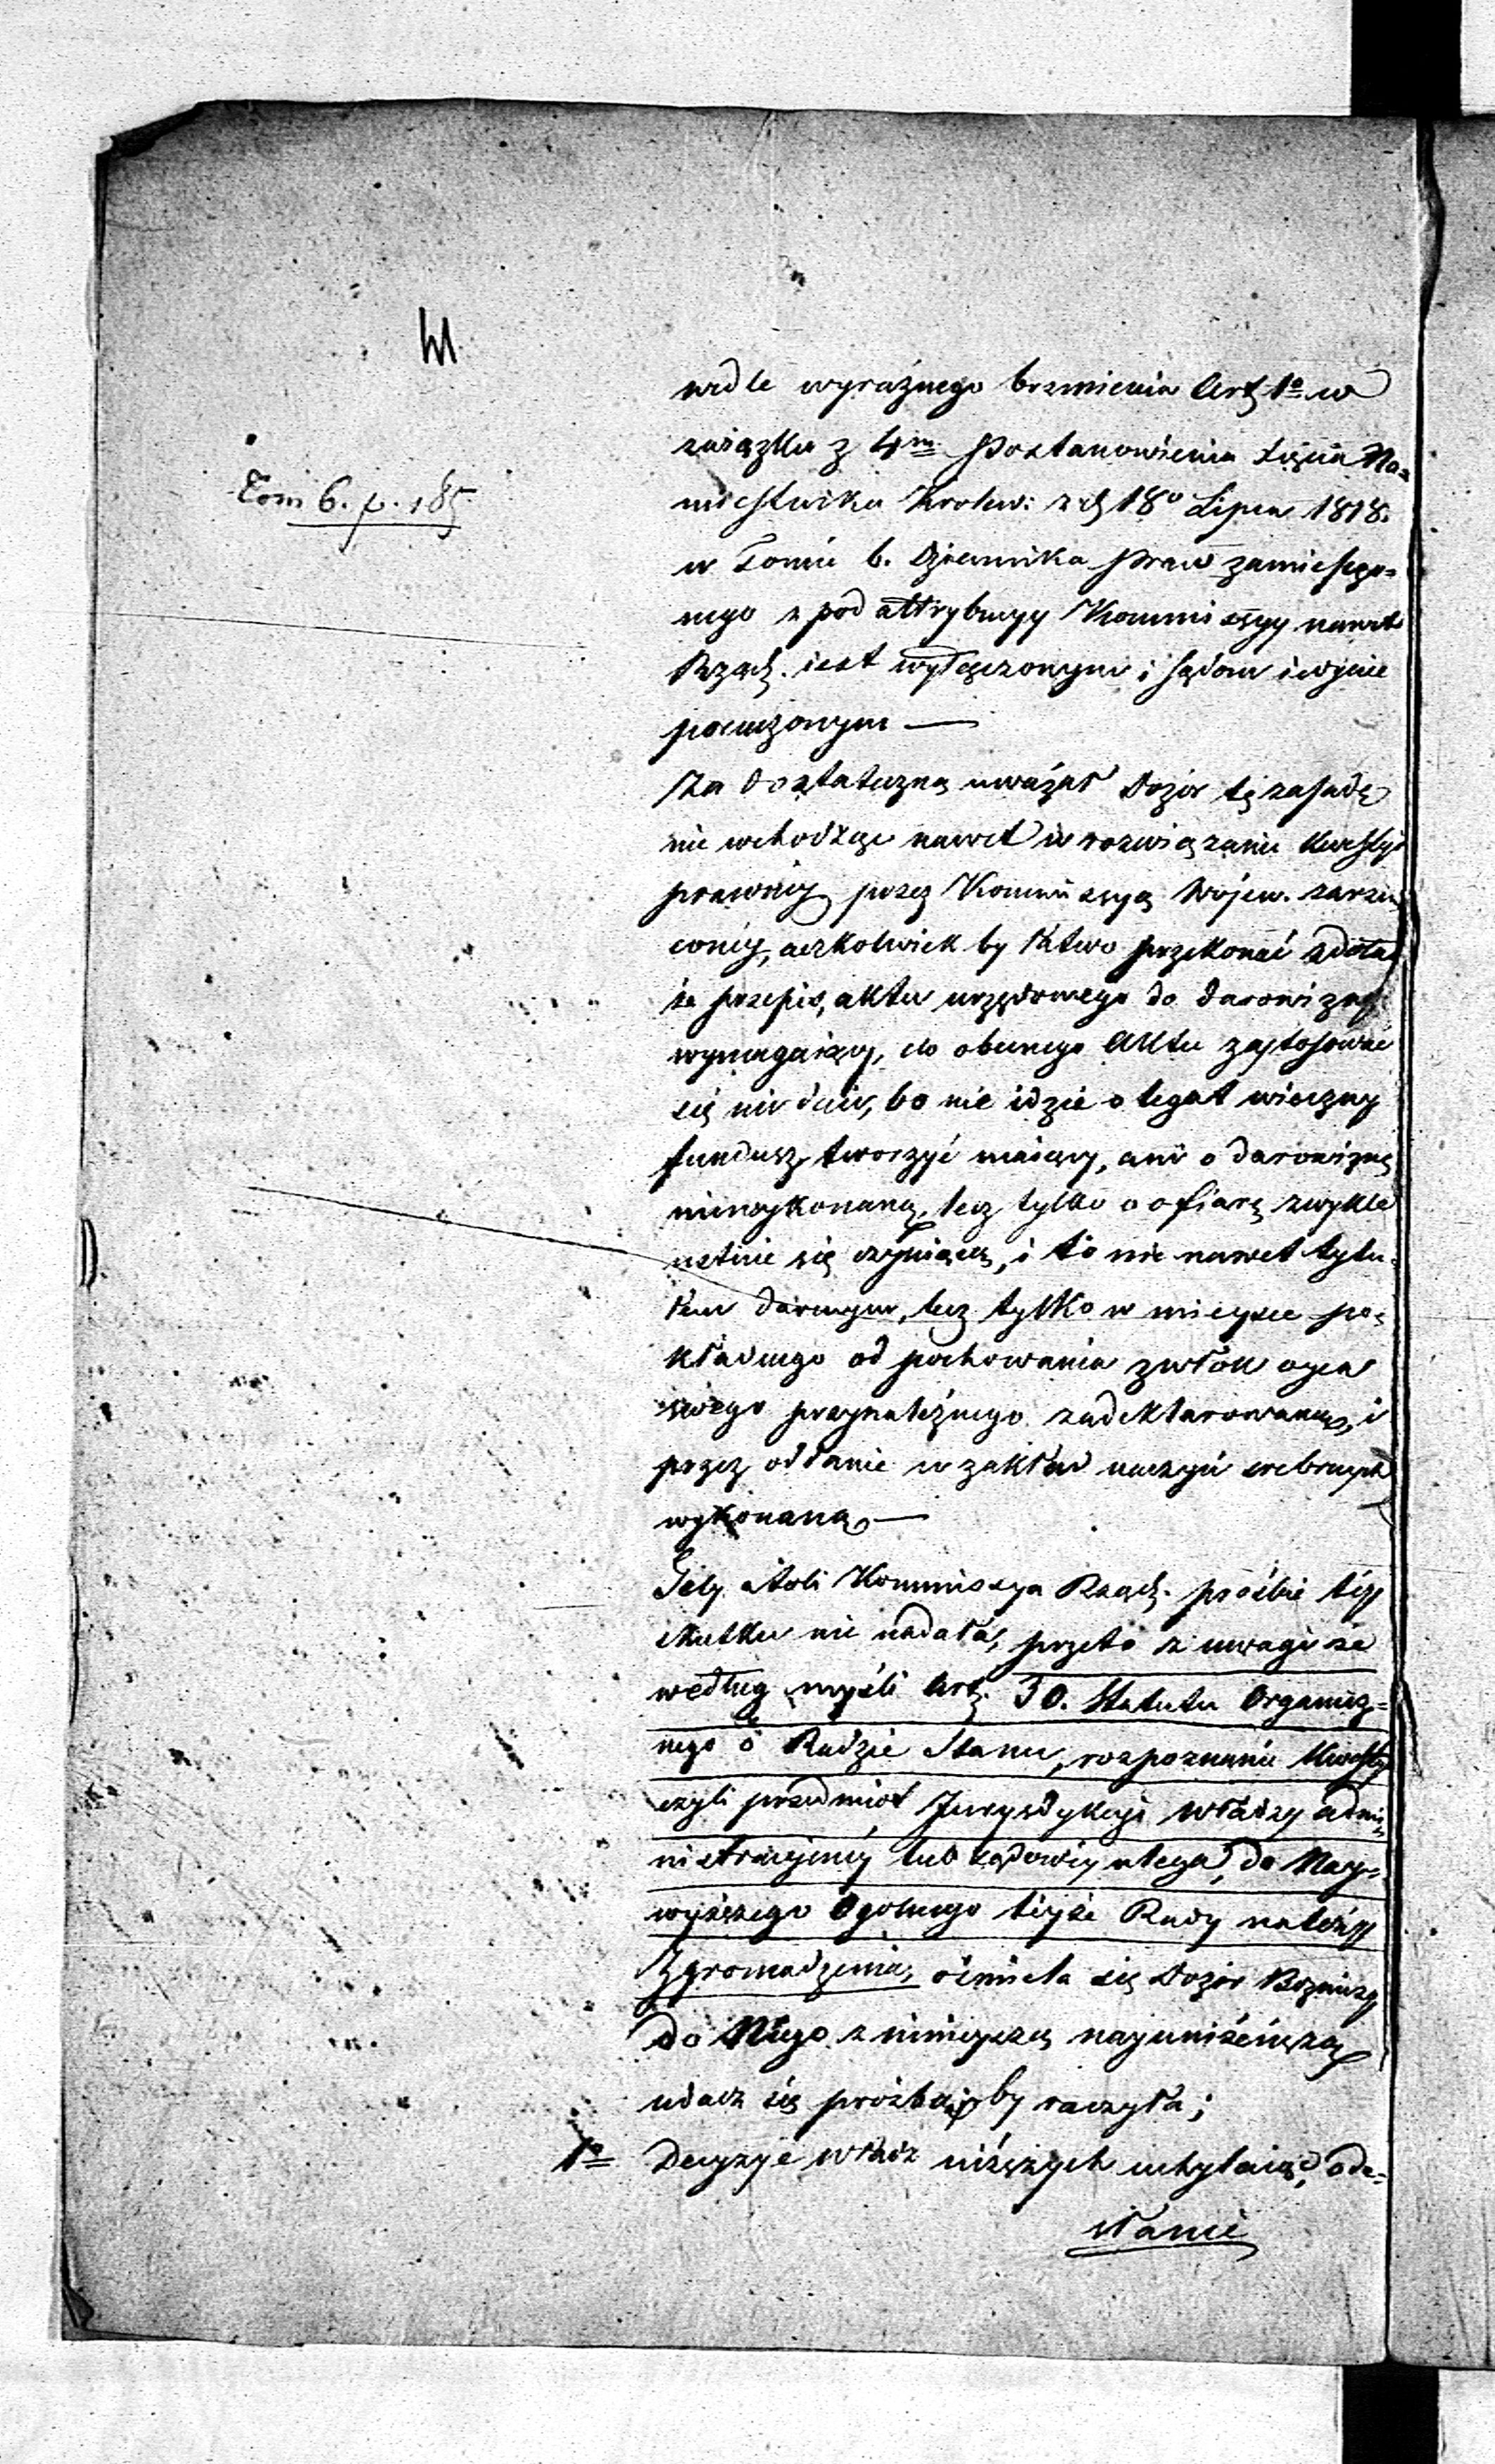 Tom 6. p. 185
wdle wyraźnego brzmienia Art. 1º w
związku z 4m Postanowienia Xięcia Na=
miestnika Krolew: z d. 18º Lipca 1818.
w Tomie 6. Dziennika Praw zamieszczo=
nego z pod attrybucyy Kommissyy nawet
Rząd. iest wyłączonym i sądom iedynie
poruczonym —
Za dostateczną uważał Dozór tę zasadę
nie wchodząc nawet w rozwiązanie kwestyi
prawnéy przez Kommissyą Wojew. zarzu
conéy, aczkolwiek by łatwo przekonać zdołał
że przepis, aktu urzędowego do darowizny
wymagaiący, do obecnego Aktu zastosować
się nie daie, bo nie idzie o legat wieczny
fundusz tworzyć maiący, ani o darowiznę
niewykonaną, lecz tylko o ofiarę zwykle
ustnie się czyniącą, i to nie nawet tytu=
łem darmym, lecz tylko w mieysce po=
kładnego od pochowania zwłok oyca
swego przynależnego zadeklarowaną, i
przez oddanie w zakład naczyń srebrnych
wykonaną —
Gdy atoli Kommissya Rząd. prośbie téy
skutku nie nadała, przeto z uwagi że
według myśli Art. 30. Statutu Organicz=
nego o Radzie Stanu, rozpoznanie kwestyi
czyli przedmiot Jurysdykcyi władzy admi=
nistracyjnéy lub sądowéy ulega, do Nay=
wyższego Ogolnego teyże Rady należy
Zgromadzenia, ośmiela się Dozór Bożniczy
do Niego z ninieyszą nayuniżeńszą
udadź się prośbą, by raczyła;
1º Decyzye władz niższych uchylaiąc, ode=
słanie